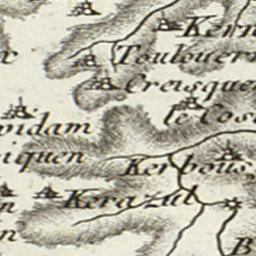 Kern
Toulouern
Creisque
le Cos
vidam
iquen
Kerbous
Kerazul
n
n
B